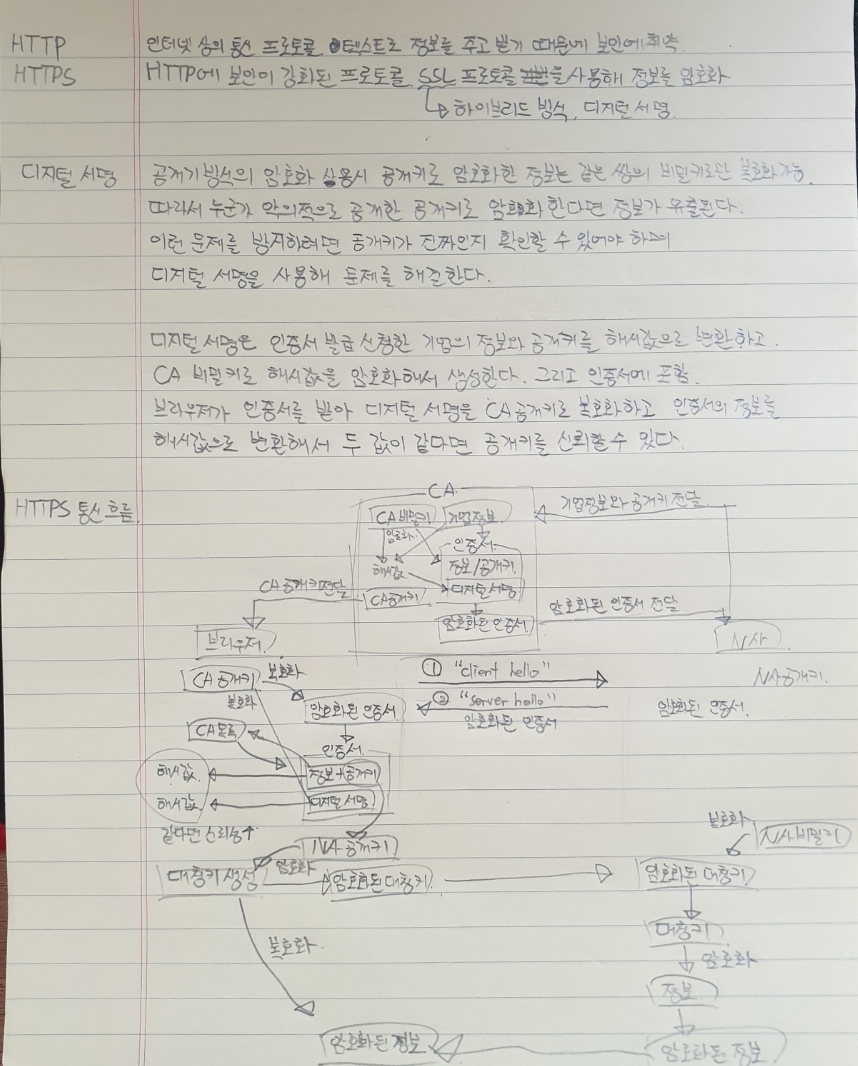 HTTP 인터넷 상의 통신 프로토콜 텍스트로 정보를 주고 받기 때문에 보안에 취약.
HTTPS HTTP에 보안이 강화된 프로토콜. SSL 프로토콜을 사용해 정보를 암호화
하이브리드 방식, 디지털 서명
디지털 서명 공개키 방식의 암호화 사용시 공개키로 암호화한 정보는 같은 쌍의 비밀키로만 복호화가능.
따라서 누군가 악의적으로 공개한 공개키로 암호화 한다면 정보가 유출된다.
이런 문제를 방지하려면 공개키가 진짜인지 확인할 수 있어야 하며
디지털 서명을 사용해 문제를 해결한다.
디지털 서명은 인증서 발급 신청한 기업의 정보와 공개키를 해시값으로 변환하고.
CA 비밀키로 해시값을 암호화해서 생성한다. 그리고 인증서에 포함.
브라우저가 인증서를 받아 디지털 서명을 CA공개키로 복호화하고 인증서의 정보를
해시값으로 변환해서 두 값이 같다면 공개키를 신뢰할 수 있다.
HTTPS 통신 흐름.
CA
기업정보와 공개키 전달
CA비밀키 기업정보
암호화
인증서
정보/공개키
해시값
디지털서명
CA공개키전달
CA공개키
암호화된 인증서
암호화된 인증서 전달
브라우저
N사
CA 공개키
복호화
① "client hello"
N사공개키.
복호화
암호화된 인증서
② "server hello"
암호화된 인증서
암호화된 인증서.
CA목록
인증서
해시값
정보+공개키
해시값
디지털 서명
같다면 신뢰성↑
N사 공개키
복호화
N사비밀키
대칭키 생성
암호화
암호화된 대칭키.
암호화된 대칭키
대칭키
복호화.
암호화
정보
암호화된 정보
암호화된 정보